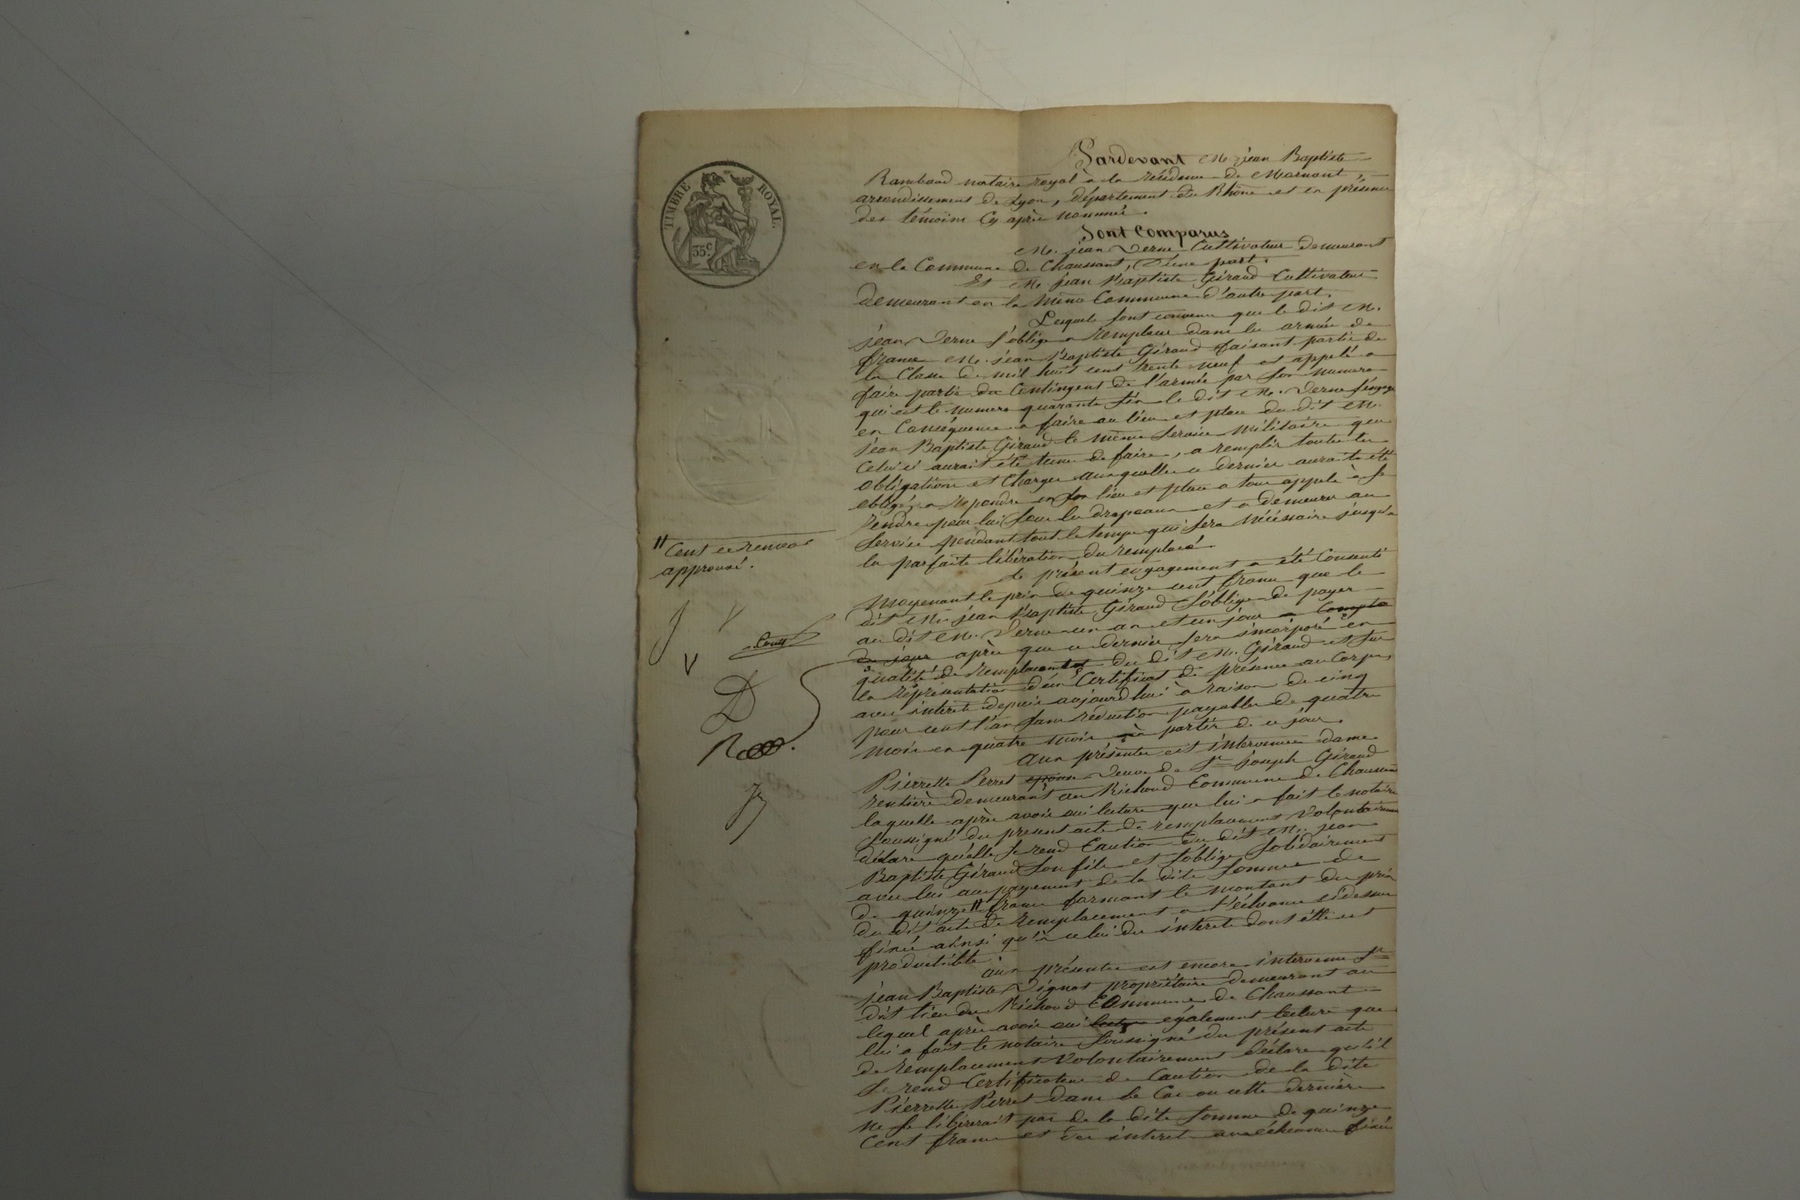 TIMBRE ROYAL
35 c.
Pardevant Me. jean Baptiste
Rambaud notaire royal à la résidence de Mornant,
arrondissement de Lyon, département du Rhône et en présence
des témoins Cy après nommés.
Sont Comparus
M. jean Verne Cultivateur demeurant
en la Commune de Chaussant, D'une part.
Et M. jean Baptiste Giraud Cultivateur
demeurant en la même Commune D'autre part.
Lesquels sont convenu que le dit M.
jean Verne s'oblige a remplacer dans les armées de
france M. jean Baptiste Giraud faisant partie de
la Classe de mil huit cent trente neuf et appelé a
faire partie du Contingent de l'armée par son numero
qui est le numero quarante six le dit M. Verne s'engage
en Conséquence a faire au lieu et place du dit M.
jean Baptiste Giraud le même Service Militaire que
Celui ci aurait été tenu de faire, a remplir toutes les
obligations et Charges auxquelles ce dernier aurait été
obligé, a repondre en son lieu et place a tous appels à se
rendre pour lui sous les drapeaux et a demeurer au
Service pendant tout le temps qui sera nécéssaire jusqu'a
la parfaite libération du remplacé.
Le présent engagement a été Consenti
Moyenant le prix de quinze cent francs que le
dit M. jean Baptiste Giraud s'oblige de payer
au dit M. Verne un an et un jour a Compter
du jour après que ce dernier sera incorporé en
qualité de remplacant du dit M. Giraud et sur
la réprésentation d'un Certificat de présence au Corps,
avec intérêt depuis aujourd'hui à raison de cinq
pour cent l'an sans réduction payables de quatre
mois en quatre mois à partir de ce jour.
aux présentes est intervenue dame
Pierrette Perret epouse veuve de Sr. joseph Giraud
rentière demeurant au Richoud Commune de Chaussant
laquelle après avoir oui lecture que lui a fait le notaire
soussigné du present acte de remplacement volontairement
déclare qu'elle se rend Caution du dit M. jean
Baptiste Giraud son fils et s'oblige solidairement
avec lui au payement de la dite somme de
de quinze " francs formant le montant du prix
du dit acte de remplacement a l'échéance cidessus
fixée ainsi qu'à celui des intérêts dont elle est
productible.
aux présentes est encore intervenu Sr.
jean Baptiste Vignat propriétaire demeurant au
dit lieu du Richoud Commune de Chaussant
lequel après avoir oui lecture également lecture que
lui a fait le notaire soussigné du présent acte
de remplacement volontairement déclare qu'il
se rend Certificateur de Caution de la dite
Pierrette Perret dans le Cas ou cette dernière
ne se libérerait pas de la dite somme de quinze
Cent francs et des intérêts aux échéances fixées
" Cent ce renvoi
approuvé.